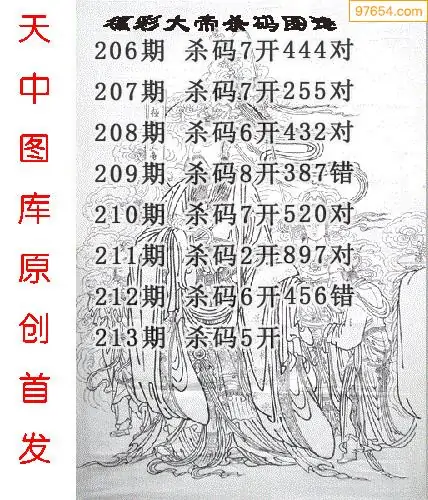 97654.com
福彩大帝杀码图谜
206期 杀码7开444对
207期 杀码7开255对
208期 杀码6开432对
209期 杀码8开387错
210期 杀码7开520对
211期 杀码2开897对
212期 杀码6开456错
213期 杀码5开
天中图库原创首发